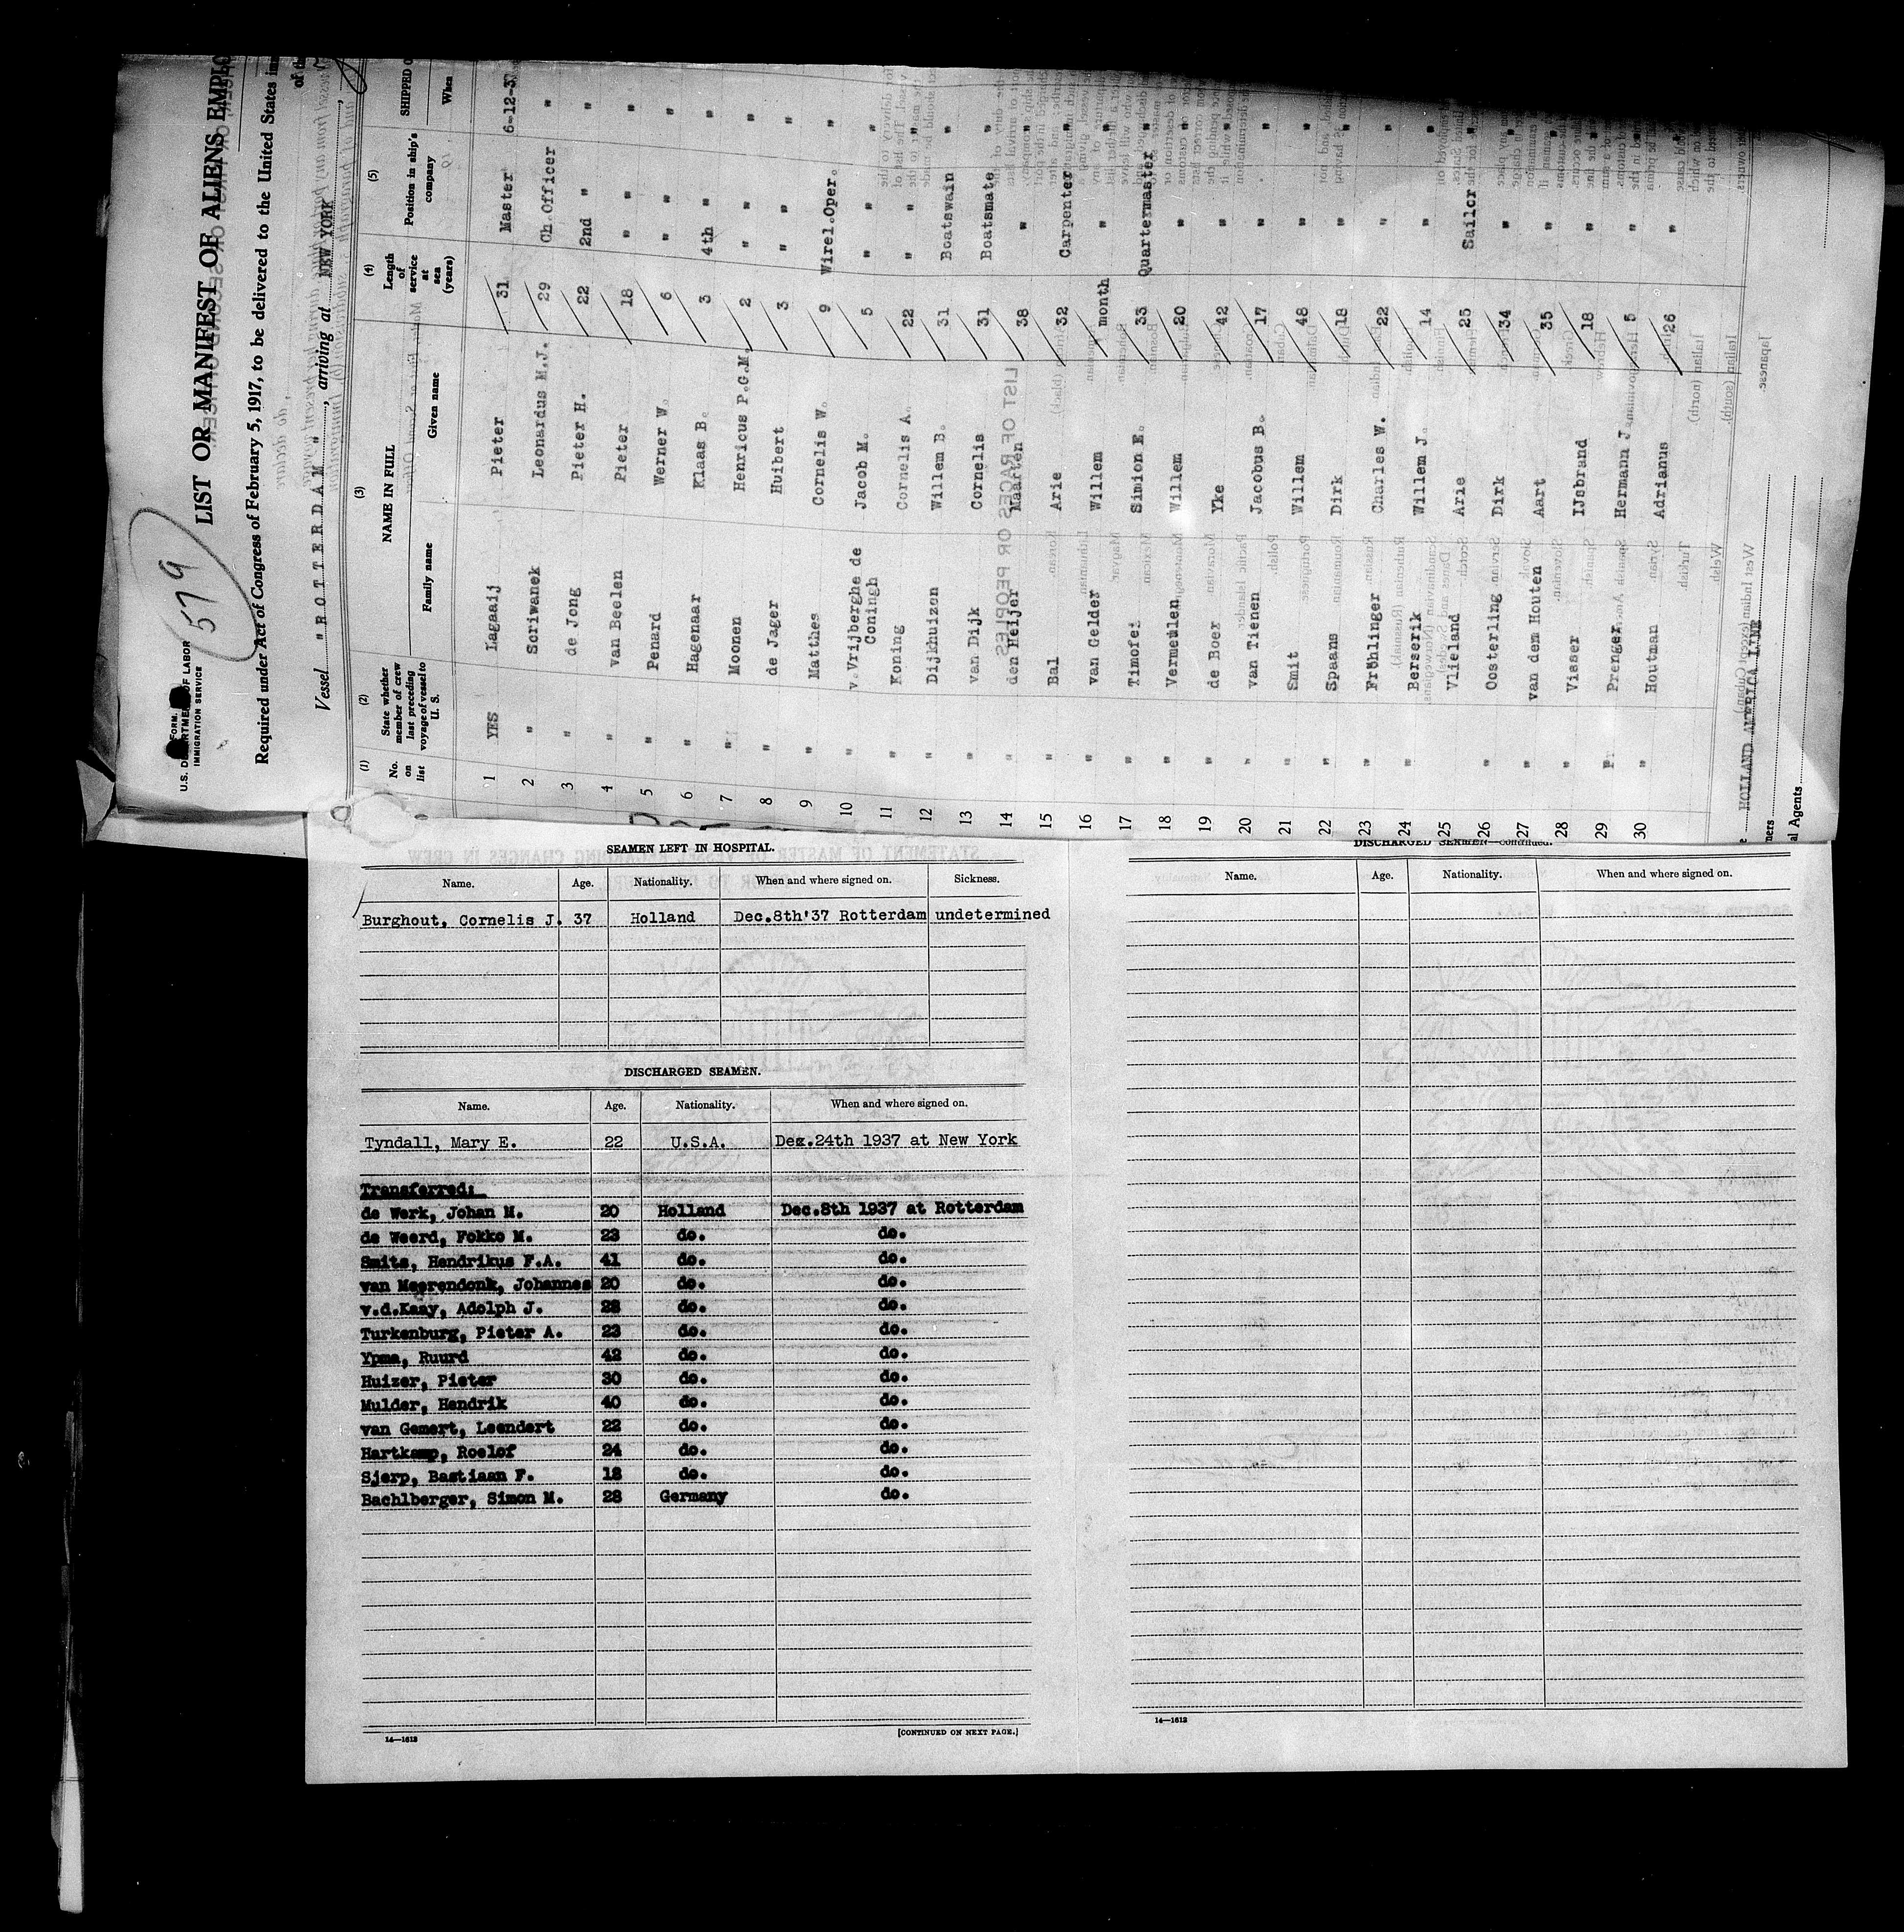 579
U.S. DEPARTMENT OF LABOR
IMMIGRATION SERVICE
LIST OR MANIFEST OF ALIENS EMPLO
Required under Act of Congress of February 5, 1917, to be delivered to the United States
Vessel "ROTTERDAM", arriving at NEW YORK
(1) No. on list
(2) State whether member of crew last preceding voyage of vessel to U. S.
(3) NAME IN FULL
Family name Given name
(4) Length of service at sea (years)
(5) Position in ship's company
SHIPPED O
When
1 YES Lagaaij Pieter 31 Master 6-12-37
2 " Scriwanek Leonardus M.J. 29 Ch.Officer "
3 " de Jong Pieter H. 22 2nd " "
4 " van Beelen Pieter 18 " "
5 " Penard Werner W. 6 " "
6 " Hagenaar Klaas B. 3 4th " "
7 " Moonen Henricus P.G.M. 2 " "
8 " de Jager Huibert 3 " "
9 " Matthes Cornelis W. 9 Wirel.Oper. "
10 " v.Vrijberghe de Coningh Jacob M. 5 " "
11 " Koning Cornelis A. 22 " "
12 " Dijkhuizen Willem B. 31 Boatswain "
13 " van Dijk Cornelis 31 Boatsmate "
14 " den Heijer Maarten 38 " "
15 " Bal Arie 32 Carpenter "
16 " van Gelder Willem month " "
17 " Timofei Simion E. 33 Quartermaster "
18 " Vermeulen Willem 20 " "
19 " de Boer Yke 42 " "
20 " van Tienen Jacobus B. 17 " "
21 " Smit Willem 48 " "
22 " Spaans Dirk 18 " "
23 " Fröhlinger Charles W. 22 " "
24 " Berserik Willem J. 14 " "
25 Vlieland Arie 25 Sailor "
26 " Oosterling Dirk 34 " "
27 " van dem Houten Aart 35 " "
28 " Visser IJsbrand 18 " "
29 " Prenger Hermann J. 5 " "
30 " Houtman Adrianus 26 " "
HOLLAND AMERICA LINE
al Agents
SEAMEN LEFT IN HOSPITAL.
Name. Age. Nationality. When and where signed on. Sickness.
Burghout, Cornelis J. 37 Holland Dec.8th'37 Rotterdam undetermined
DISCHARGED SEAMEN.
Name. Age. Nationality. When and where signed on.
Tyndall, Mary E. 22 U.S.A. Dec.24th 1937 at New York
Transferred:
de Werk, Johan M. 20 Holland Dec.8th 1937 at Rotterdam
de Weerd, Fokko M. 23 do. do.
Smits, Hendrikus F.A. 41 do. do.
van Meerendonk, Johannes 20 do. do.
v.d.Kaay, Adolph J. 28 do. do.
Turkenburg, Pieter A. 23 do. do.
Ypma, Ruurd 42 do. do.
Huizer, Pieter 30 do. do.
Mulder, Hendrik 40 do. do.
van Gemert, Leendert 22 do. do.
Hartkamp, Roelof 24 do. do.
Sjerp, Bastiaan F. 18 do. do.
Bachlberger, Simon M. 28 Germany do.
14—1612
[CONTINUED ON NEXT PAGE.]
DISCHARGED SEAMEN—continued.
Name. Age. Nationality. When and where signed on.
14—1612